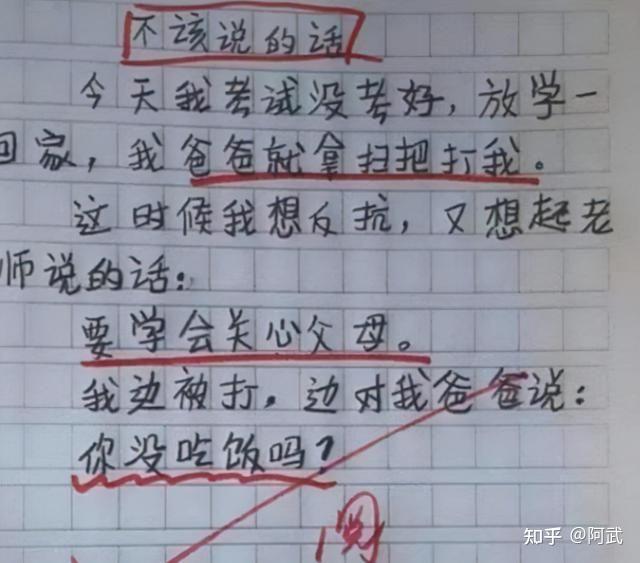 不该说的话
今天我考试没考好，放学一
回家，我爸爸就拿扫把打我。
这时候我想反抗，又想起老
师说的话：
要学会关心父母。
我边被打，边对我爸爸说：
你没吃饭吗？
阅
知乎 @阿武